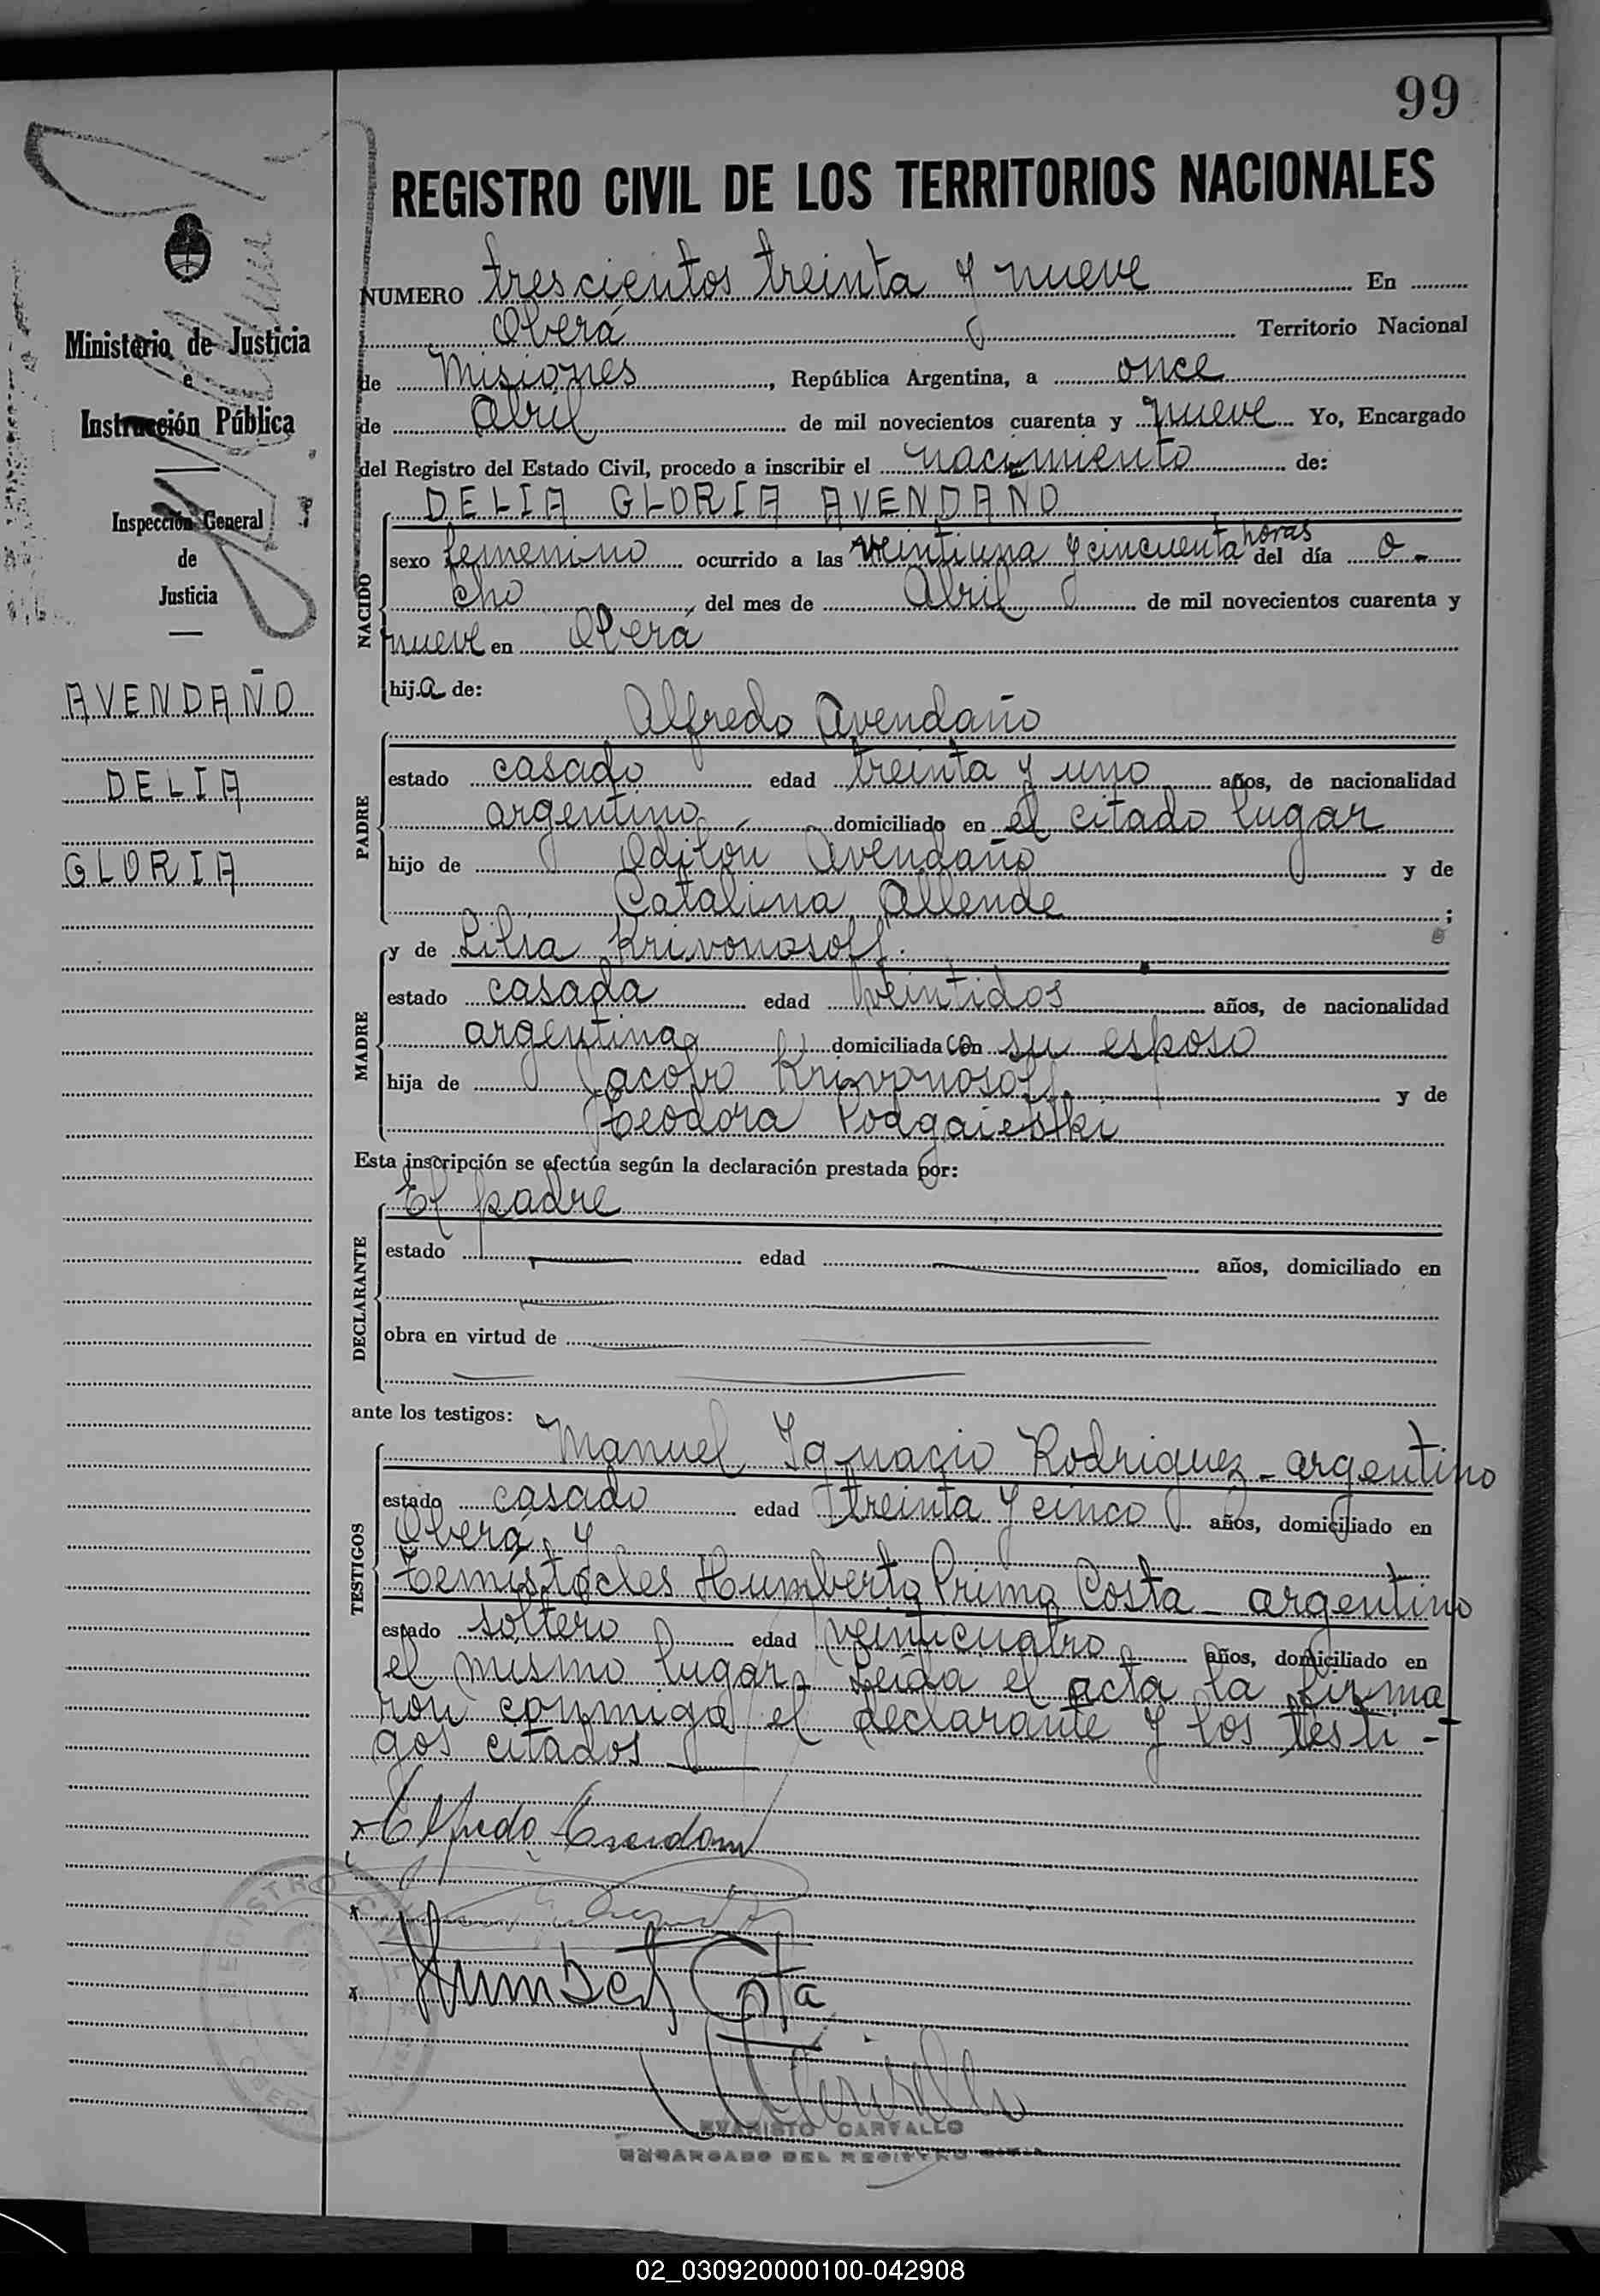 99
REGISTRO CIVIL DE LOS TERRITORIOS NACIONALES
Ministerio de Justicia
e
Instrucción Pública
Inspección General
de
Justicia
AVENDAÑO
DELIA
GLORIA
NUMERO trescientos treinta y nueve En
Oberá Territorio Nacional
de Misiones, República Argentina, a once
de Abril de mil novecientos cuarenta y nueve Yo, Encargado
del Registro del Estado Civil, procedo a inscribir el nacimiento de:
NACIDO
DELIA GLORIA AVENDAÑO
sexo femenino ocurrido a las veintiuna y cincuenta horas del día o-
cho del mes de Abril de mil novecientos cuarenta y
nueve en Oberá
hija de:
PADRE
Alfredo Avendaño
estado casado edad treinta y uno años, de nacionalidad
argentino domiciliado en el citado lugar
hijo de Odilón Avendaño y de
Catalina Allende ;
MADRE
y de Lilia Krivonosoff.
estado casada edad veintidos años, de nacionalidad
argentina domiciliada con su esposo
hija de Jacobo Krivonosoff y de
Teodora Podgaietski
Esta inscripción se efectúa según la declaración prestada por:
DECLARANTE
El padre
estado edad años, domiciliado en
obra en virtud de
ante los testigos:
TESTIGOS
Manuel Ignacio Rodriguez - argentino
estado casado edad treinta y cinco años, domiciliado en
Oberá y
Temistocles Humberto Primo Costa - argentino
estado soltero edad veinticuatro años, domiciliado en
el mismo lugar. Leída el acta la firma
ron conmigo el declarante y los testi-
gos citados
Alfredo Avendaño
Humberto Costa
REGISTRO CIVIL
OBERA
EVARISTO CARVALLO
ENCARGADO DEL REGISTRO CIVIL
02_030920000100-042908